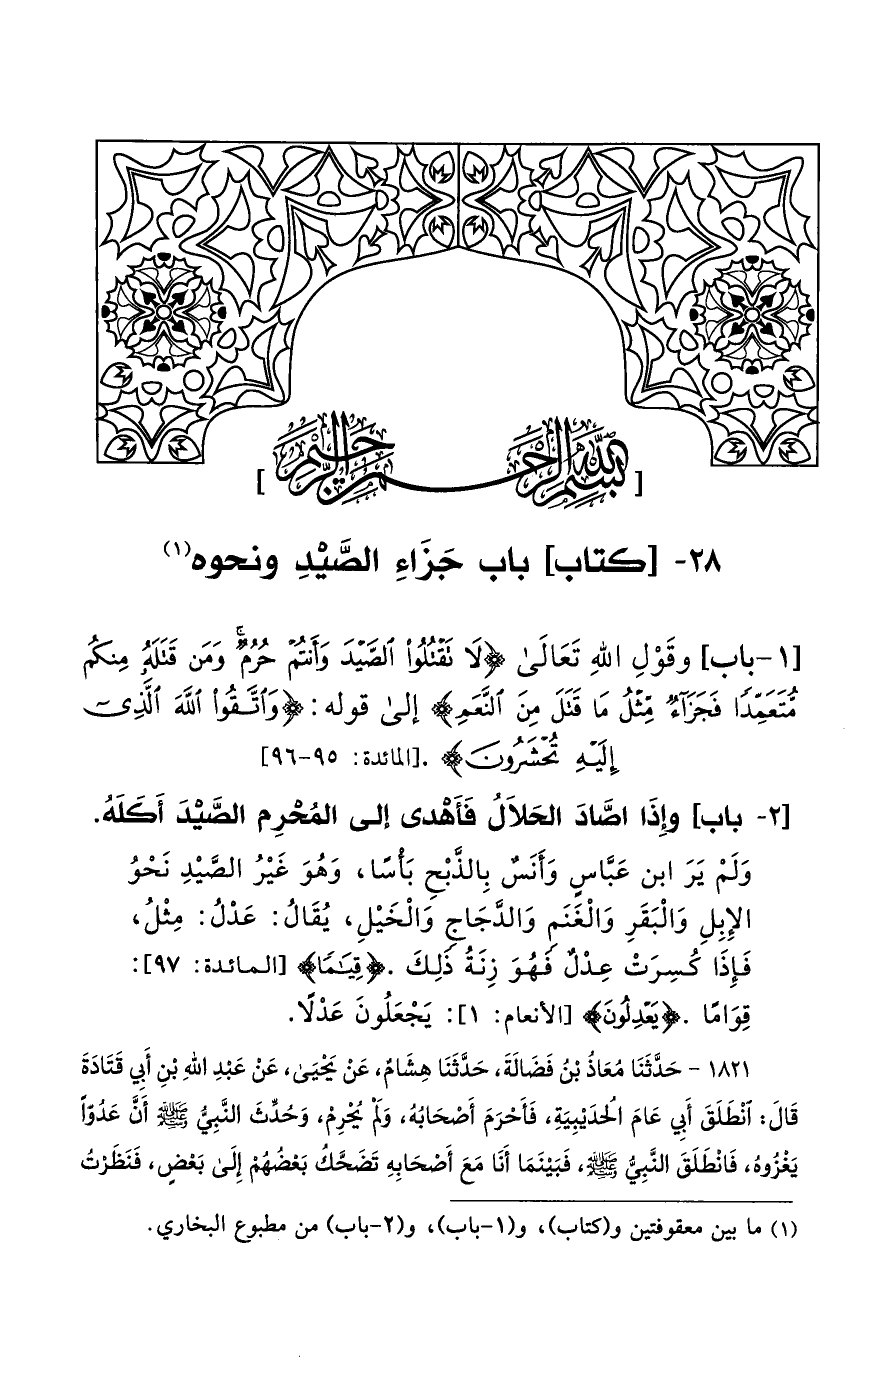 [بسم الله الرحمن الرحيم]
٢٨- [كتاب] باب جَزَاءِ الصَّيْدِ ونحوه(١)
[١-باب] وقَوْلِ اللهِ تَعَالَىٰ ﴿لَا تَقْتُلُوا۟ ٱلصَّيْدَ وَأَنتُمْ حُرُمٌۭ ۚ وَمَن قَتَلَهُۥ مِنكُم
مُّتَعَمِّدًا فَجَزَآءٌ مِّثْلُ مَا قَتَلَ مِنَ ٱلنَّعَمِ﴾ إلىٰ قوله: ﴿وَٱتَّقُوا۟ ٱللَّهَ ٱلَّذِىٓ
إِلَيْهِ تُحْشَرُونَ﴾ .[المائدة: ٩٥-٩٦]
[٢- باب] وإِذَا اصَّادَ الحَلاَلُ فَأَهْدى إلى المُحْرِم الصَّيْدَ أَكَلَهُ.
وَلَمْ يَرَ ابن عَبَّاسٍ وَأَنَسٌ بِالذَّبْحِ بَأْسًا، وَهُوَ غَيْرُ الصَّيْدِ نَحْوُ
الإِبِلِ وَالْبَقَرِ وَالْغَنَمِ وَالدَّجَاجِ وَالْخَيْلِ، يُقَالُ: عَدْلُ: مِثْلُ،
فَإِذَا كُسِرَتْ عِدْلٌ فَهُوَ زِنَةُ ذَلِكَ .﴿قِيَـٰمًا﴾ [المائدة: ٩٧]:
قِوَامًا .﴿يَعْدِلُونَ﴾ [الأنعام: ١]: يَجْعَلُونَ عَدْلًا.
١٨٢١ - حَدَّثَنَا مُعَاذُ بْنُ فَضَالَةَ، حَدَّثَنَا هِشَامٌ، عَنْ يَحْيَىٰ، عَنْ عَبْدِ اللهِ بْنِ أَبِي قَتَادَةَ
قَالَ: ٱنْطَلَقَ أَبِي عَامَ الْحُدَيْبِيَةِ، فَأَحْرَمَ أَصْحَابُهُ، وَلَمْ يُحْرِمْ، وَحُدِّثَ النَّبِيُّ ﷺ أَنَّ عَدُوّاً
يَغْزُوهُ، فَانْطَلَقَ النَّبِيُّ ﷺ، فَبَيْنَمَا أَنَا مَعَ أَصْحَابِهِ تَضَحَّكُ بَعْضُهُمْ إِلَىٰ بَعْضٍ، فَنَظَرْتُ
(١) ما بين معقوفتين و(كتاب)، و(١-باب)، و(٢-باب) من مطبوع البخاري.